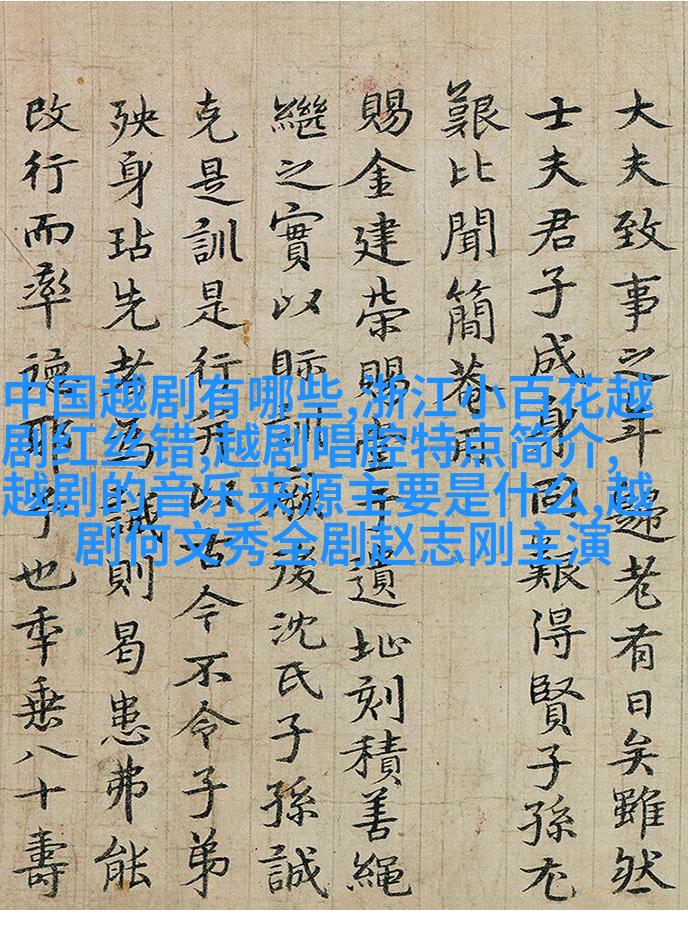 中国越剧有哪些,浙江小百花越
剧红丝错,越剧唱腔特点简介,
越剧的音乐来源主要是什么,越
剧何文秀全剧赵志刚主演
大夫致事之年歸老有日矣雖然
士夫君子成身固艱得賢子孫尤
艱比聞簡菴
賜金建榮賜堂于遺址刻積善繩
繼之實以貽訓厥後沈氏子孫誠
克是訓是行弗以古今不令子弟
殃身玷先者為誡則曷患弗能
改行而率德耶予也年垂八十壽